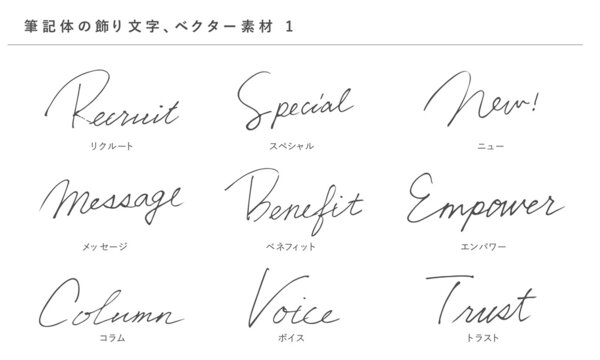 筆記体の飾り文字、ベクター素材 1
Recruit Special New!
リクルート スペシャル ニュー
Message Benefit Empower
メッセージ ベネフィット エンパワー
Column Voice Trust
コラム ボイス トラスト